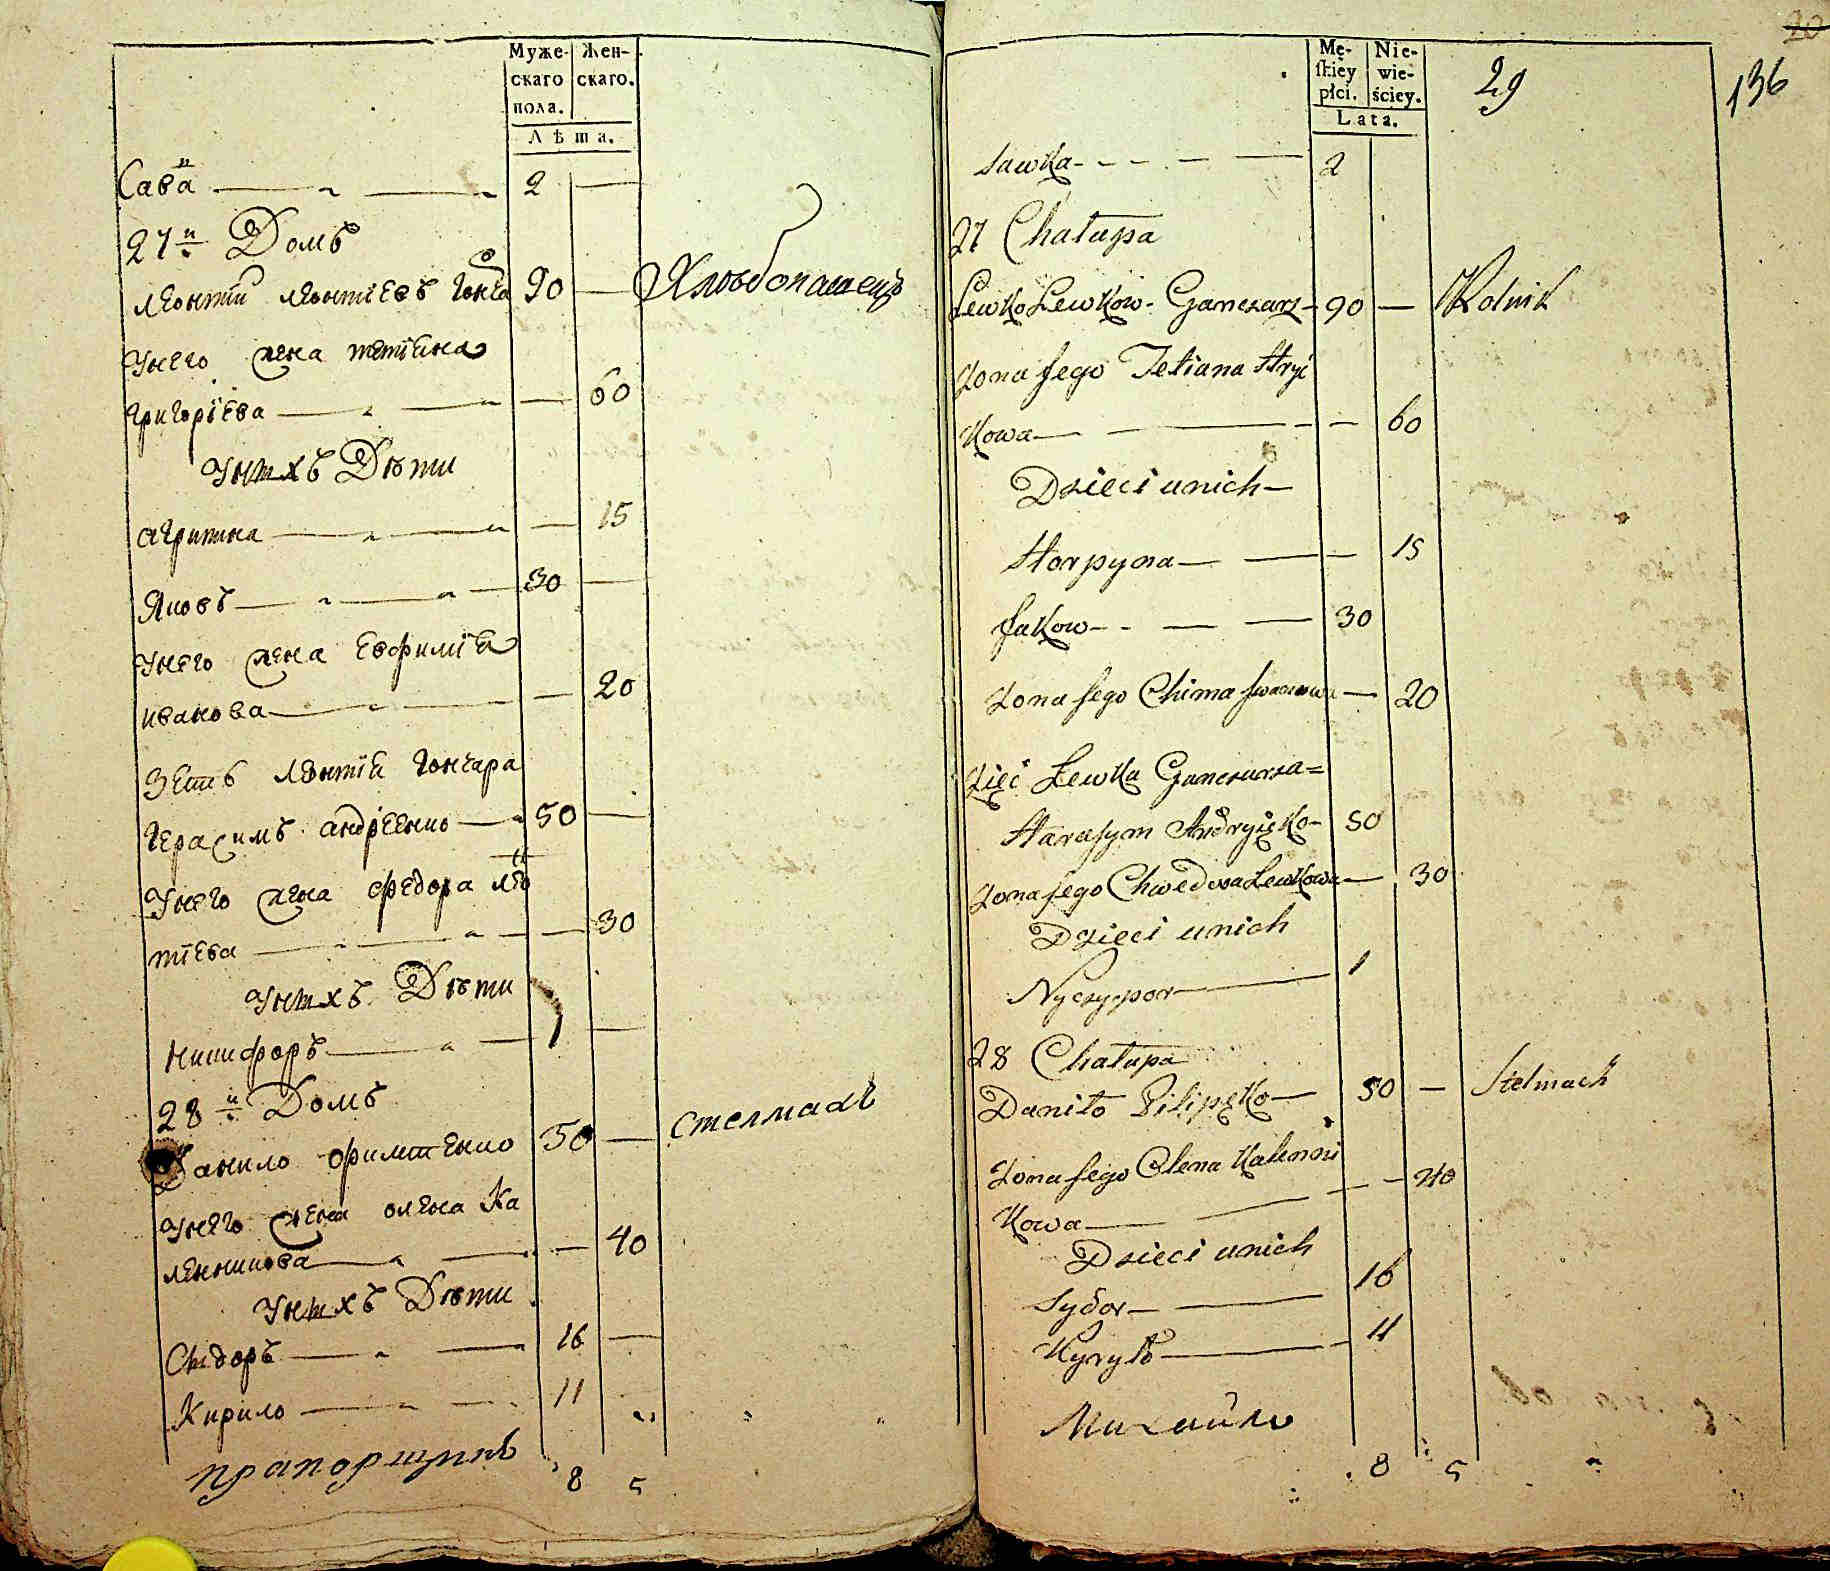 Муже-
скаго
пола.
Жен-
скаго.
Лѣта.
Сава 2
27й Домъ
Леонтий Леонтіевъ Гонча 90 — Хлѣбопашецъ
Унего жена Тетіана
Григоріева 60
Унихъ Дѣти
Агрипина 15
Яковъ 30
Унего жена Евфимія
Иванова 20
Зеть Леонтія Гончара
Герасимъ Андріенко 50
Унего жена Федора Лео
тіева 30
Унихъ Дѣти
Никифоръ 1
28й Домъ
Данило 50 — Стелмахъ
Унего жена Олена Ка
ленникова 40
Унихъ Дѣти
Сидоръ 16
Кирило 11
прапорщикъ
8 5
20
Mę-
skiéy
płci.
Nie-
wie-
ściey.
Lata.
29
136
Sawka 2
27 Chałupa
Lewko Lewkow Ganczarz 90 — Rolnik
Zona Jego Tetiana Hryi
Kowa 60
Dzieci unich
Horpyna 15
Jakow 30
Zona Jego Chima Iwanowa 20
Zięć Lewka Ganczarza
Harasym Andryięko 50
Zona Jego Chwedora Lewkowa 30
Dzieci unich
Nyczypor 1
28 Chałupa
Daniło Pilipęko 50 — Stelmach
Zona Jego Olena Kalenni
Kowa 40
Dzieci unich
Sydor 16
Kyryło 11
Михайло
8 5